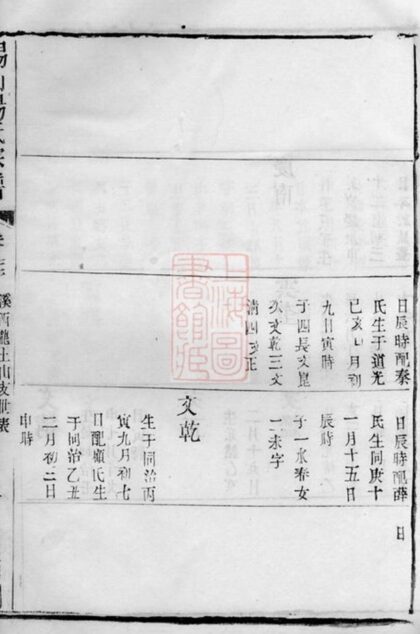 日辰時配秦
氏生于道光
己亥月初
九日寅時
子四長文崑
次文乾三文
清四文正
日
日辰時配薛
氏生同庚十
一月十五日
辰時
子一水春女
一未字
文乾
生于同治丙
寅九月初七
日配顧氏生
于同治乙丑
二月初二日
申時
上海圖書館藏
溪西龍土山支世表